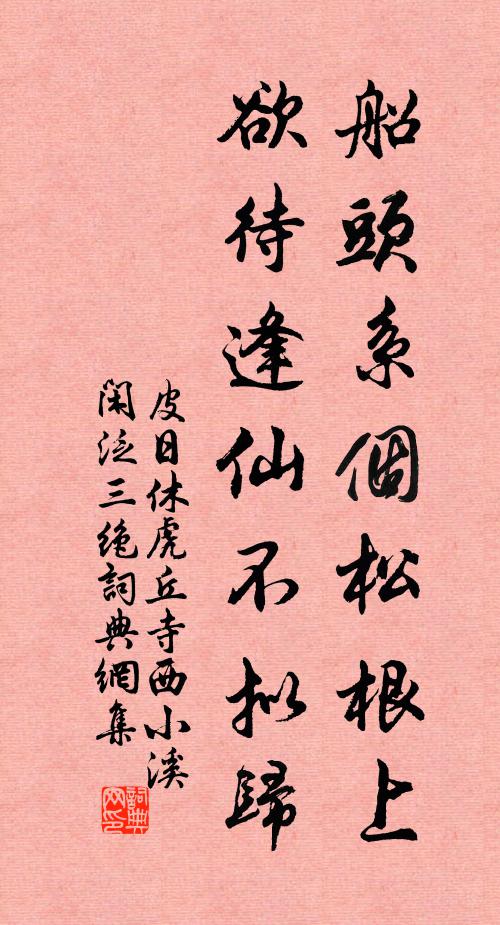 船頭系個松根上
欲待逢仙不拟歸
皮日休虎丘寺西小溪
閑泛三绝詞典網集
詞典网印